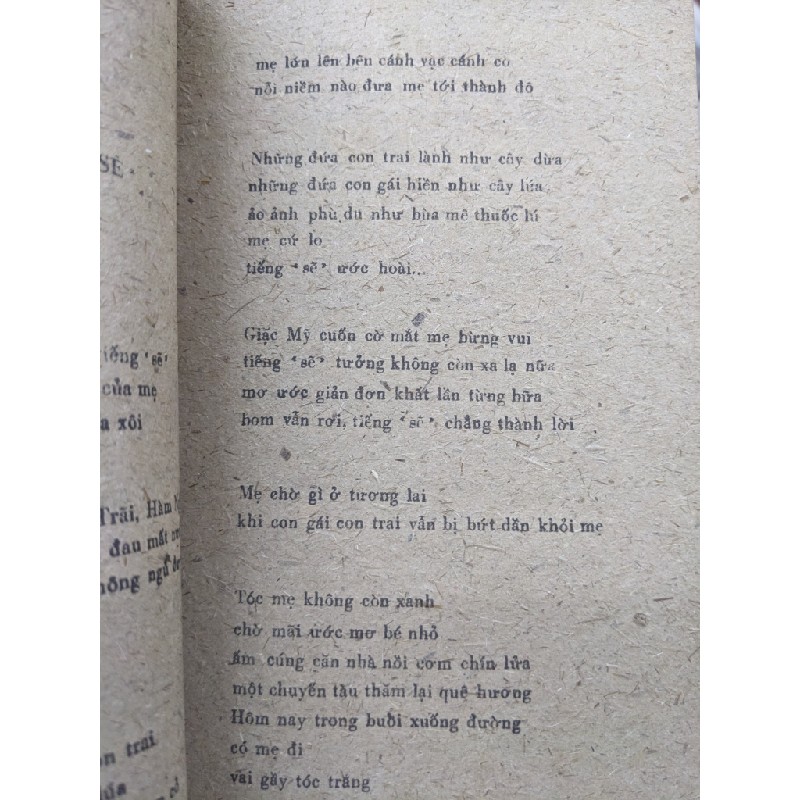 SẺ
iếng ‘sẽ’
của mẹ
a xôi
Trãi, Hàm
đau mắt
hông ngủ
on trai
úa
mẹ lớn lên bên cánh vạc cánh cò
nỗi niềm nào đưa mẹ tới thành đô
Những đứa con trai lành như cây dừa
những đứa con gái hiền như cây lúa
ảo ảnh phù du như bùa mê thuốc lú
mẹ cứ lo
tiếng ‘sẽ’ ước hoài...
Giặc Mỹ cuốn cờ mắt mẹ bừng vui
tiếng ‘sẽ’ tưởng không còn xa lạ nữa
mơ ước giản đơn khất lần từng bữa
bom vẫn rơi, tiếng ‘sẽ’ chẳng thành lời
Mẹ chờ gì ở tương lai
khi con gái con trai vẫn bị bứt dần khỏi mẹ
Tóc mẹ không còn xanh
chờ mãi ước mơ bé nhỏ
ấm cúng căn nhà nồi cơm chín lửa
một chuyến tầu thăm lại quê hương
Hôm nay trong buổi xuống đường
có mẹ đi
vai gầy tóc trắng